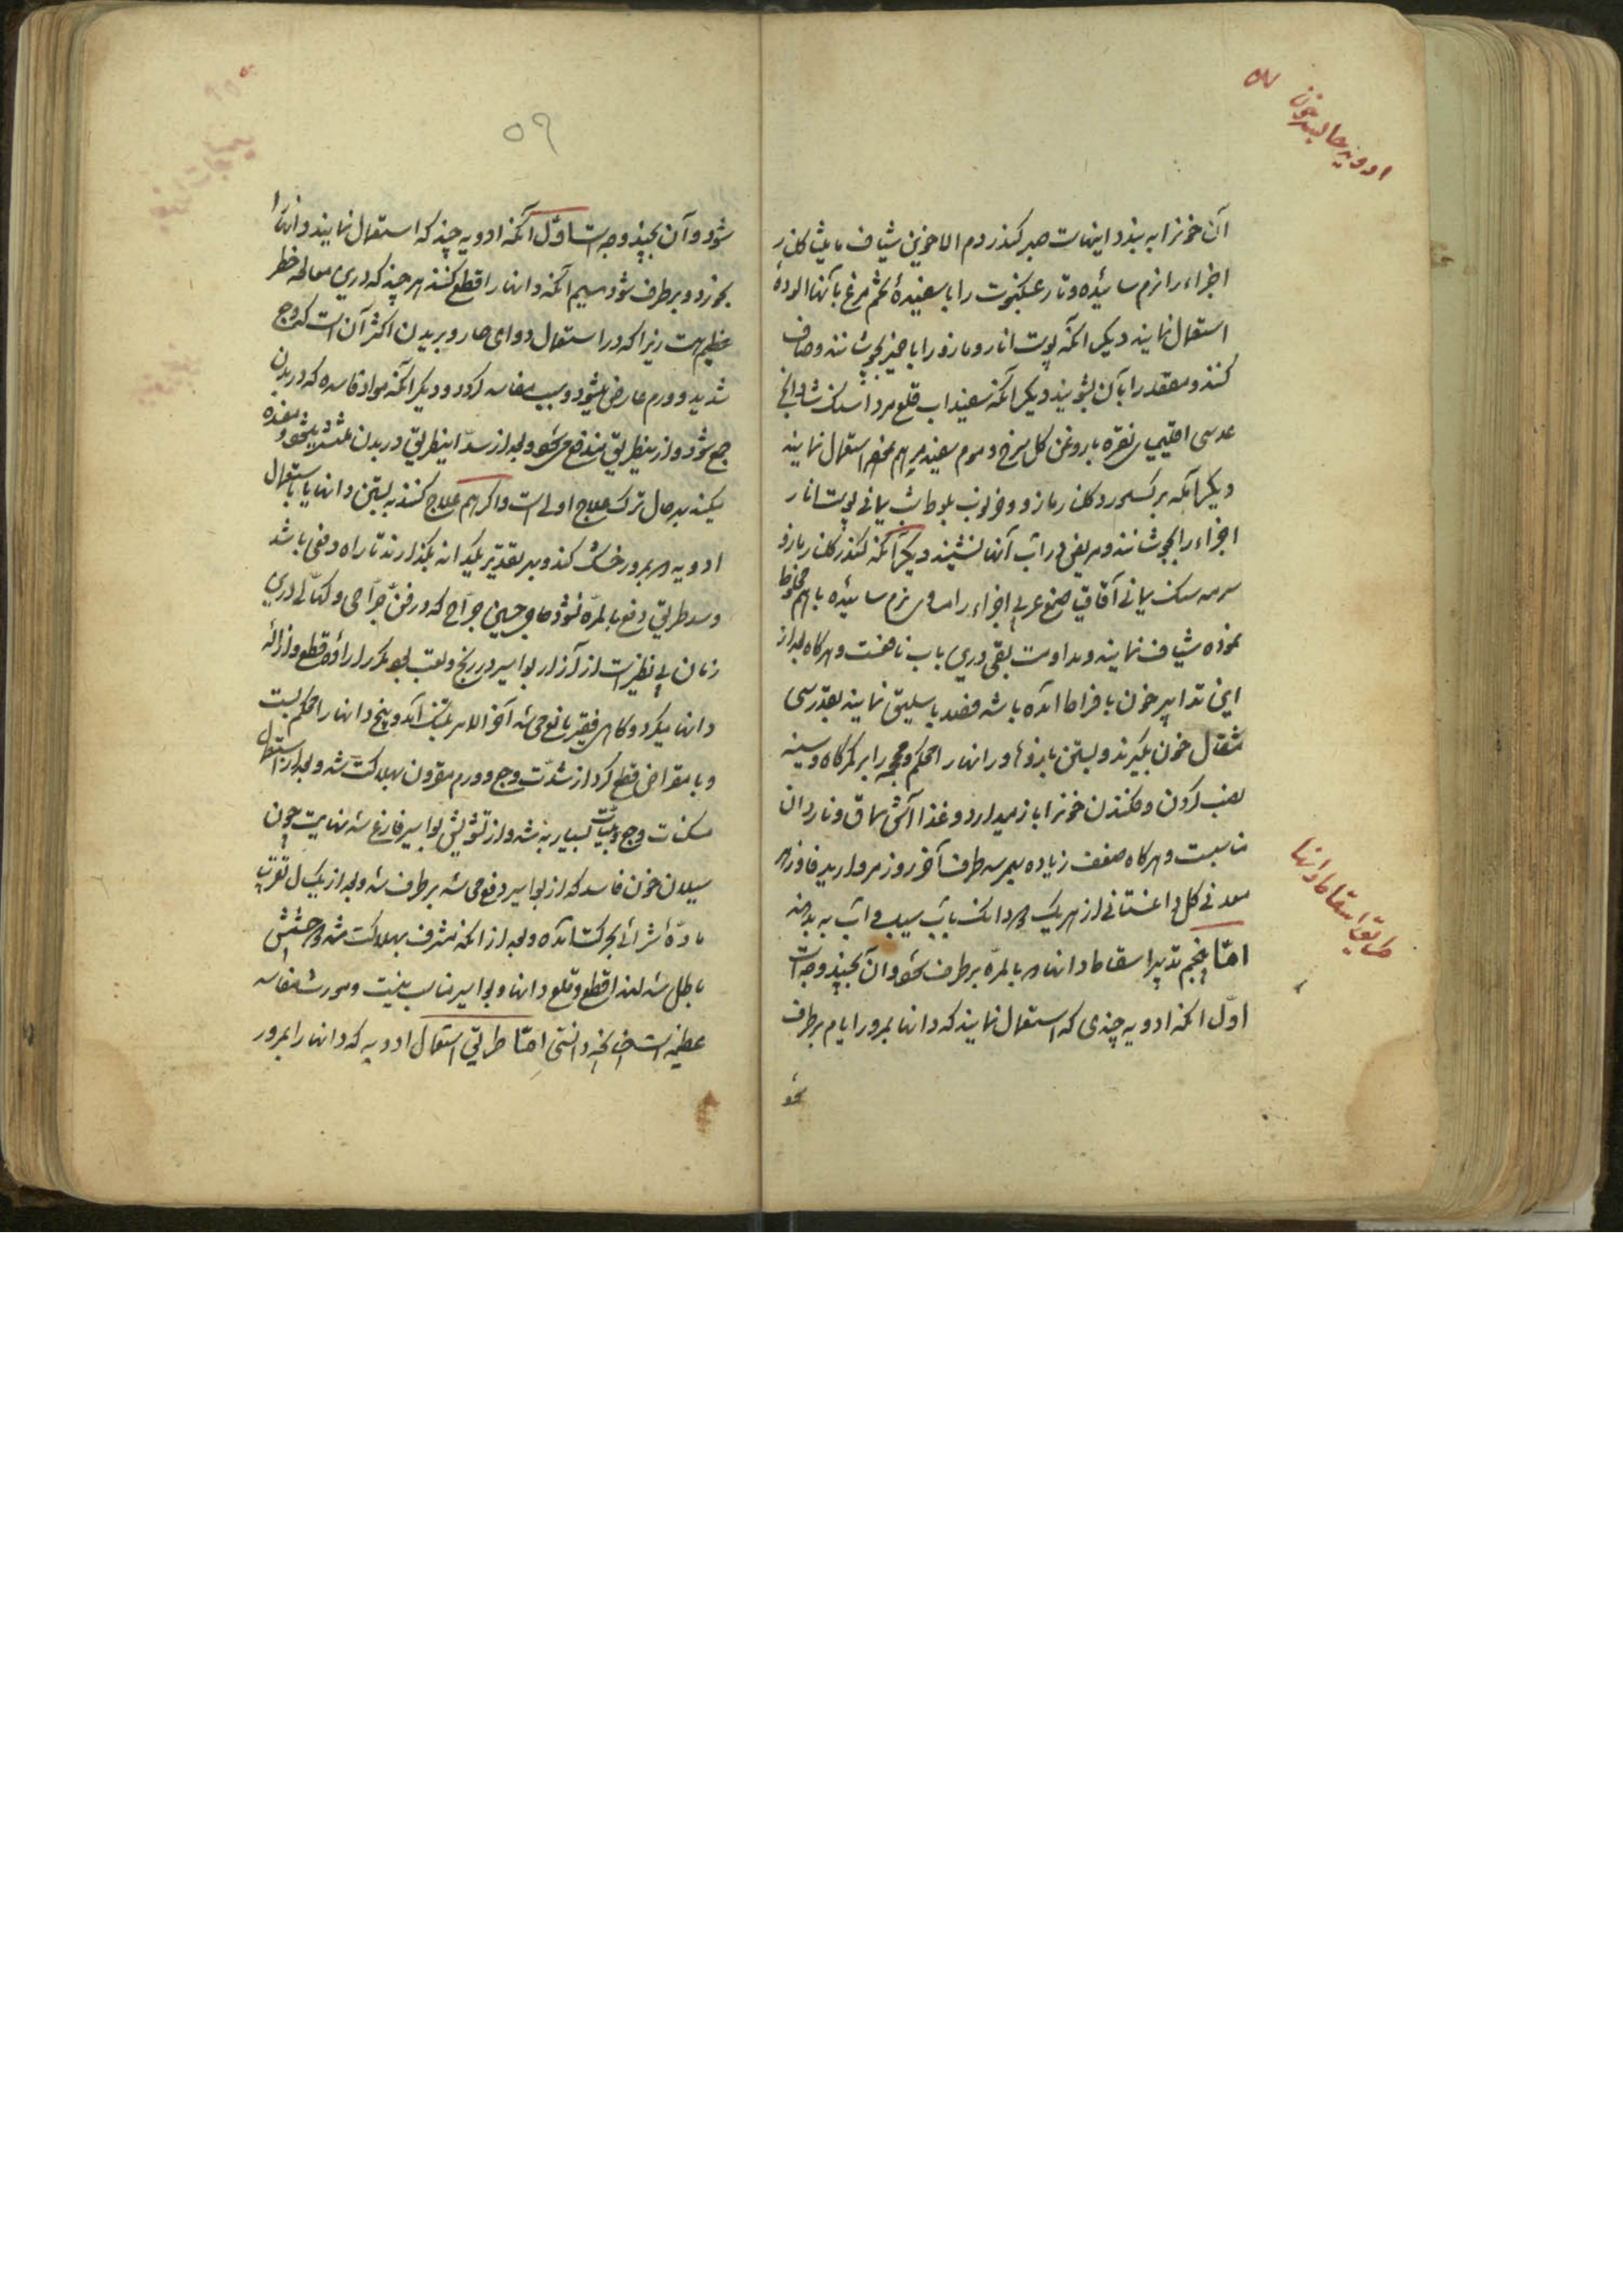 ادویه حابسه خون
آن خونرا به بندد اینهاست صبر کندر دم الاخوین شیاف مامیثا گلنار
اجزاء را نرم سائیده و تار عنکبوت را با سفیدهٔ تخم مرغ بآنها آلوده
استعمال نمایند دیگر آنکه پوست انار و مازو را با خمر بجوشانند و صاف
کنند و مقعد را بآن بشویند دیگر آنکه سفیداب قلع مرداسنگ شادنج
عدسی اقلیمیای نقره با روغن گل سرخ و موم سفید مرهم نموده استعمال نمایند
دیگر آنکه برک مورد گلنار مازو و خرنوب بلوط شب یمانی پوست انار
اجزاء را بجوشانند و مریض در آب آنها نشیند دیگر آنکه کندر گلنار مازو
سرمه سنگ یمانی آقاقیا صمغ عربی اجزاء را مساوی نرم سائیده باهم مخلوط
نموده شیاف نمایند و مداومت بقی درین باب نافعست و هرگاه بعد از
این تدابیر خون بافراط آمده باشد فصد باسلیق نمایند بقدر سی
مثقال خون بگیرند و بستن بازوها و رانها را محکم و محجمه را بر کمرگاه و سینه
نصب کردن و مکیدن خونرا باز میدارد و غذا آش سماق و ناردان
مناسبست و هرگاه ضعف زیاده بهمرسد طرف آخر روز مروارید فادزهر
معدنی گل داغستانی از هریک دو دانک بآب سیب و آب به بدهند
طریق اسقاط دانها
امّا پنجم تدبیر اسقاط دانها که بالمرّه برطرف شود و آن بچند وجه است
اوّل آنکه ادویه چندی که استعمال نمایند که دانها بمرور ایام برطرف
شود
۵۹
شود و آن بچند وجه است اوّل آنکه ادویه چند که استعمال نمایند دانها را
بخورد و برطرف شود سیم آنکه دانها را قطع کنند هر چند که درین معالجه خطر
عظیم هست زیرا که در استعمال دوای حار و بریدن اکثر آن است که وجع
شدید و ورم عارض میشود و سبب مفاسد گردد و دیگر آنکه مواد فاسده که در بدن
جمع شود و ازین طریق مندفع می شود و بعد از سدّ اینطریق در بدن منتشر میشود و مفسده
میکند بهر حال ترک علاج اولی است و اگر هم علاج کنند به بستن دانها یا باستعمال
ادویه که بمرور خشک کند و بهر تقدیر یکدانه بگذارند تا راه دفعی باشد
و سد طریق دفع بالمرّه نشود حاجی حسین جرّاح که در فنّ جرّاحی و کحّالی درین
زمان بی نظیر است از آزار بواسیر در رنج و تعب بود مکرر ارادهٔ قطع و ازالهٔ
دانها میکرد و گاهی فقیر مانع می شد آخر الامر بتنگ آمد و پنج دانها را محکم بست
و با مقراض قطع کرد از شدّت وجع و ورم مقرون بهلاکت شد و بعد از استعمال
مسکنات وجع بسیار به شد و از تشویش بواسیر فارغ شد نهایت چون
سیلان خون فاسد که از بواسیر دفع می شد برطرف شد و بعد از یکسال تقریبا
مادّهٔ شرائی بحرکت آمده و بعد از آنکه مشرف بهلاکت شد و چشمش
باطل شد لهذا قطع و قلع دانها و بواسیر مناسب نیست و مورث مفاسد
عظیمه است چنانچه دانستی امّا طریق استعمال ادویه که دانها را بمرور